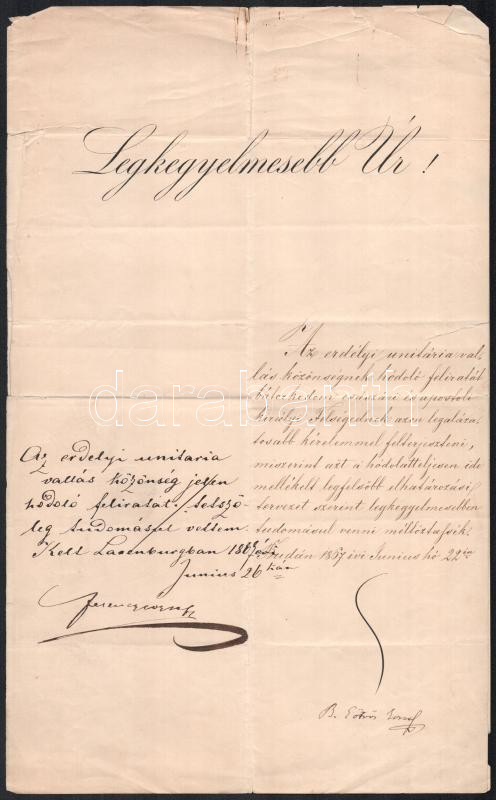 Legkegyelmesebb Úr !
Az erdélyi unitária val-
lás közönségnek hódoló feliratát
bátorkodom császári és apostoli
királyi Felségednek azon legaláza-
tosabb kérelemmel felterjeszteni,
miszerint azt a hódolatteljesen ide
mellékelt legfelsőbb elhatározási
tervezet szerint legkegyelmesebben
tudomásul venni méltóztassék.
Budán 1867 évi Junius hó 22én
B. Eötvös József
Az erdelyi unitaria
vallás közönség jelen
hódoló feliratát tetszö-
leg tudomásul vettem.
Kelt Laxenburgban 1867
Junius 26 kán
Ferencz József
darabanth